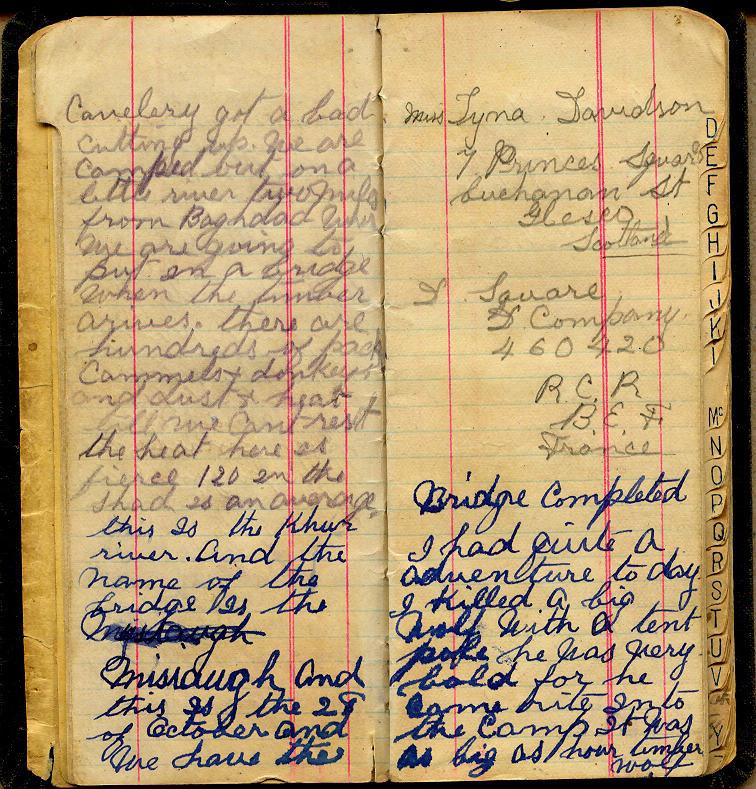 Cavelery got a bad
cutting up. We are
camped out on a
little river two mils
from Baghdad
We are going to
put in a bridge
When the timber
arives. there are
hundreds of pack
Cammels & donkeys
and dust & heat
till we Cant rest
the heat here is
fierce 120 in the
shad is an average
this is the Khur
river. And the
name of the
bridge is the
Missaugh And
this is the 29
of October and
We have the
Miss Tyna Davidson
7 Princes Square
buchanan St
Glesco
Scotland
D. Square
D Company.
460420
R.C.R
B.E.F
France
Bridge Completed
I had quite a
adventure to day
I killed a big
Wolf With a tent
pole he was very
bold for he
Came rite In to
the Camp It was
as big as hour timber
wolf
D
E
F
G
H
I
J
K
L
Mc
N
O
P
Q
R
S
T
U
V
Y